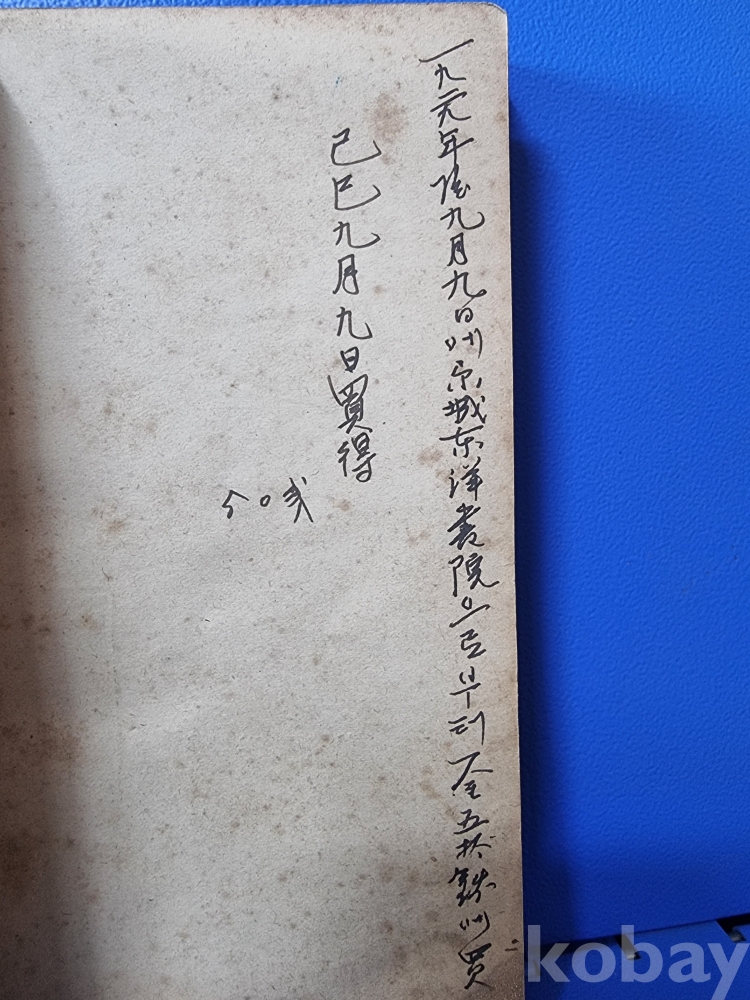 一九二九年陰九月九日에京城东洋書院으로부터金五拾錢에買
己巳九月九日買得
kobay